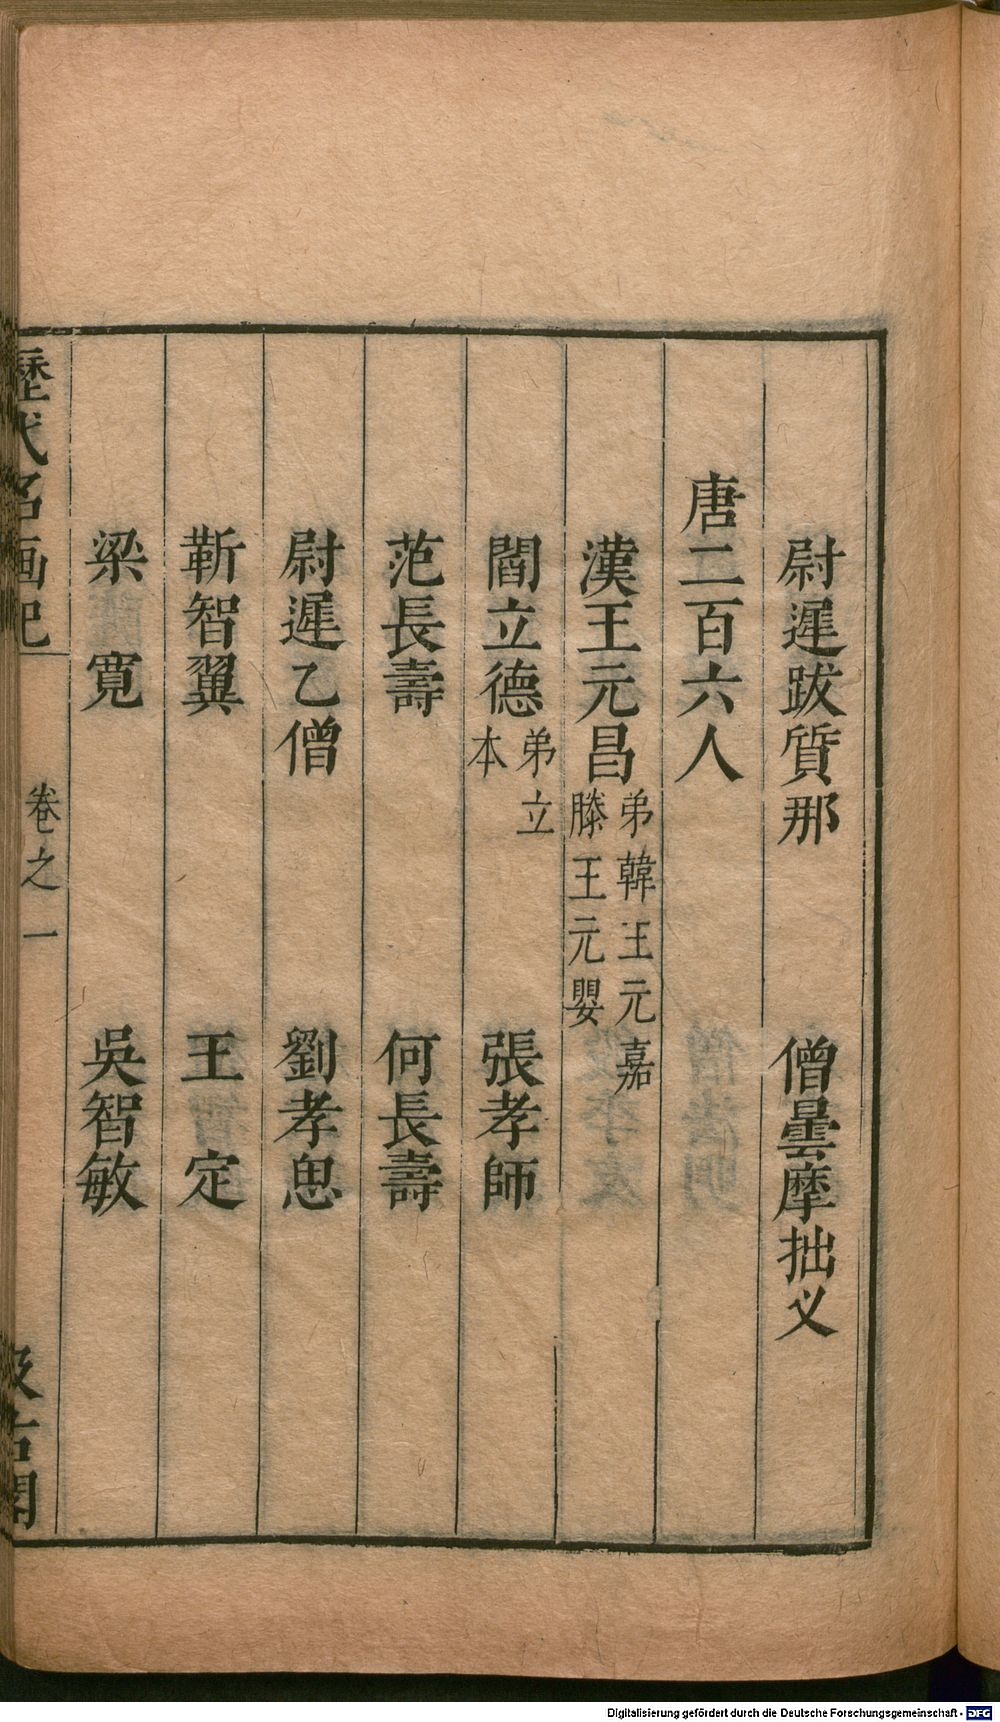 尉遲跋質那 僧曇摩拙义
唐二百六人
漢王元昌 弟韓王元嘉 滕王元嬰
閻立德 弟立本 張孝師
范長壽 何長壽
尉遲乙僧 劉孝思
靳智翼 王定
梁寛 吳智敏
歷代名画記 卷之一 汲古閣
Digitalisierung gefördert durch die Deutsche Forschungsgemeinschaft - DFG